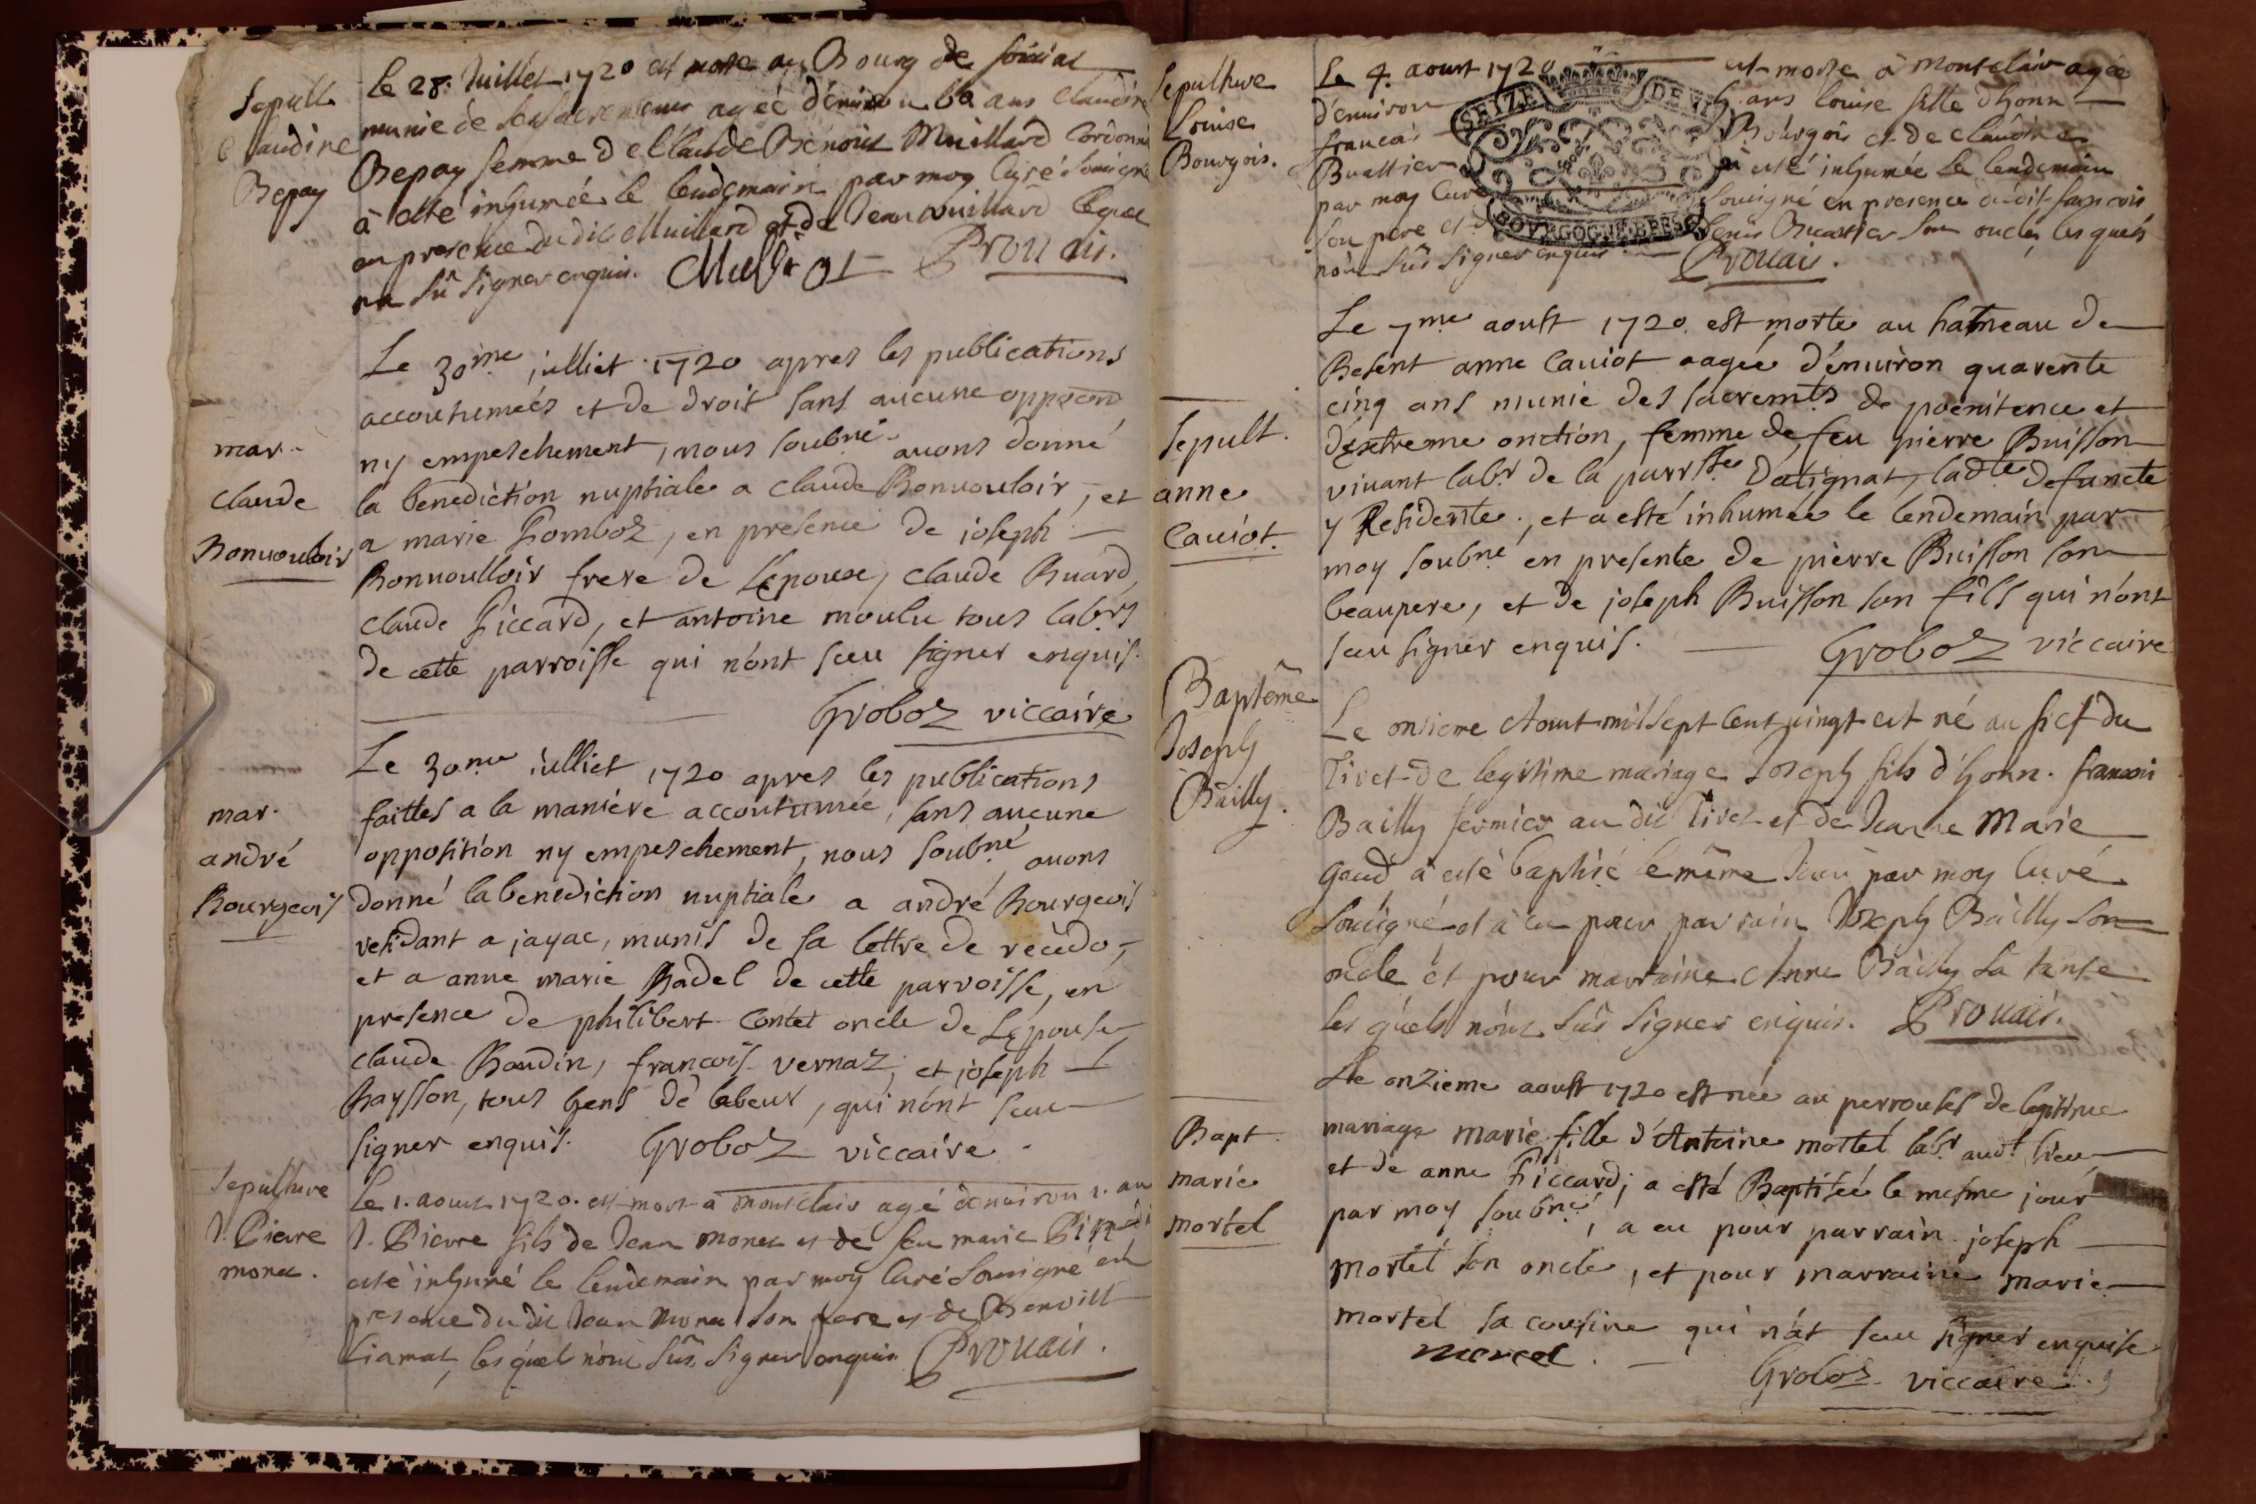 Sepult.
Claudine
Bepay
le 28. Juillet 1720 est morte au Bourg de
munie de ses sacremens agéé d'environ ans Claudine
Bepay femme de Claude Benoist Muillard Cordonn
à esté inhumeé le lendemain par moy Curé Sousigné
en presence du dit Muillard et de Jean Muillard
na sû signer enquis. Prouais.
mar.
claude
Bonuouloir
Le 30me julliet 1720 apres les publications
accoutumeés et de droit sans aucune opposon
ny empeschement, nous soubné auons donné
la benediction nuptiale a claude Bonuouloir, et
a marie Gomboz, en presence de joseph
Bonuoulloir frere de Lepoux, claude Buard,
claude Piccard, et antoine moulu tous labrs
de cette parroisse qui n'ont sceu signer enquis.
Groboz viccaire
mar.
andré
Bourgeois
Le 30me julliet 1720 apres les publications
faittes a la maniere accoutumée, sans aucune
opposition ny empeschement, nous soubné auons
donné la benediction nuptiale a andré Bourgeois
residant a jayac, munis de sa lettre de recedo,
et a anne marie Badel de cette parroisse, en
presence de philibert Contet oncle de Lepouse
claude Baudin, francois vernaz, et joseph
haysson, tous gens de labeur, qui n'ont sceu
signer enquis. Groboz viccaire
Sepulture
J. Pierre
monet.
Le 1. aoust 1720. est mort à Montclair agé denuiron 1. an
J. Pierre fils de Jean Monet et de feu marie
esté inhumé le lendemain par moy Curé Sousigné en
presence du dit Jean Monet son pere et de Benoist
lesquels nont sûs signer enquis Prouais.
Sepulture
Louise
Bourgois.
Le 4. aoust 1720 est morte à Montclair agée
d'enuiron ans Louise fille d'honn
francois Bourgois et de claudine
Buattier à esté inhumée le lendemain
par moy Curé Sousigné en presence dudit francois
son pere et Denis Buattier son oncle, lesquels
nont sûs signer enquis Prouais.
SEIZE DE VI
BOURGOGNE BRESS
Sepult.
anne
Cauiot.
Le 7me aoust 1720. est morte au hameau de
Besent anne Cauiot aagée d'enuiron quarente
cinq ans munie des sacremts de poenitence et
d'extreme onction, femme de feu pierre Buisson
viuant labr de la parrsse Datignat, ladte defuncte
y Residente, et a esté inhumée le lendemain par
moy soubné en presente de pierre Buisson son
beaupere, et de joseph Buisson son fils qui n'ont
sceu signer enquis. Groboz viccaire
Baptême
Joseph
Bailly.
Le onzieme Aoust mil Sept Cent vingt est né au fief du
Tiret de legitime mariage Joseph fils d'honn. francois
Bailly fermier au dit Tiret et de Jeanne Marie
Gaud à esté baptisé le même Jour par moy Curé
Sousigné et à eu pour parrain Joseph Bailly son
oncle et pour marraine Anne Bailly sa tante
les quels n'ont sûs signer enquis. Prouais.
Bapt.
marie
mortel
Le onzieme aoust 1720 est née au perrouses de legitime
mariage marie fille d'Antoine mortel labr audt lieu
et de anne Piccard; a esté Baptisée le mesme jour
par moy soubné, a eu pour parrain joseph
mortel son oncle, et pour marraine marie
mortel sa cousine qui n'at sceu signer enquise
mortel. Groboz viccaire.